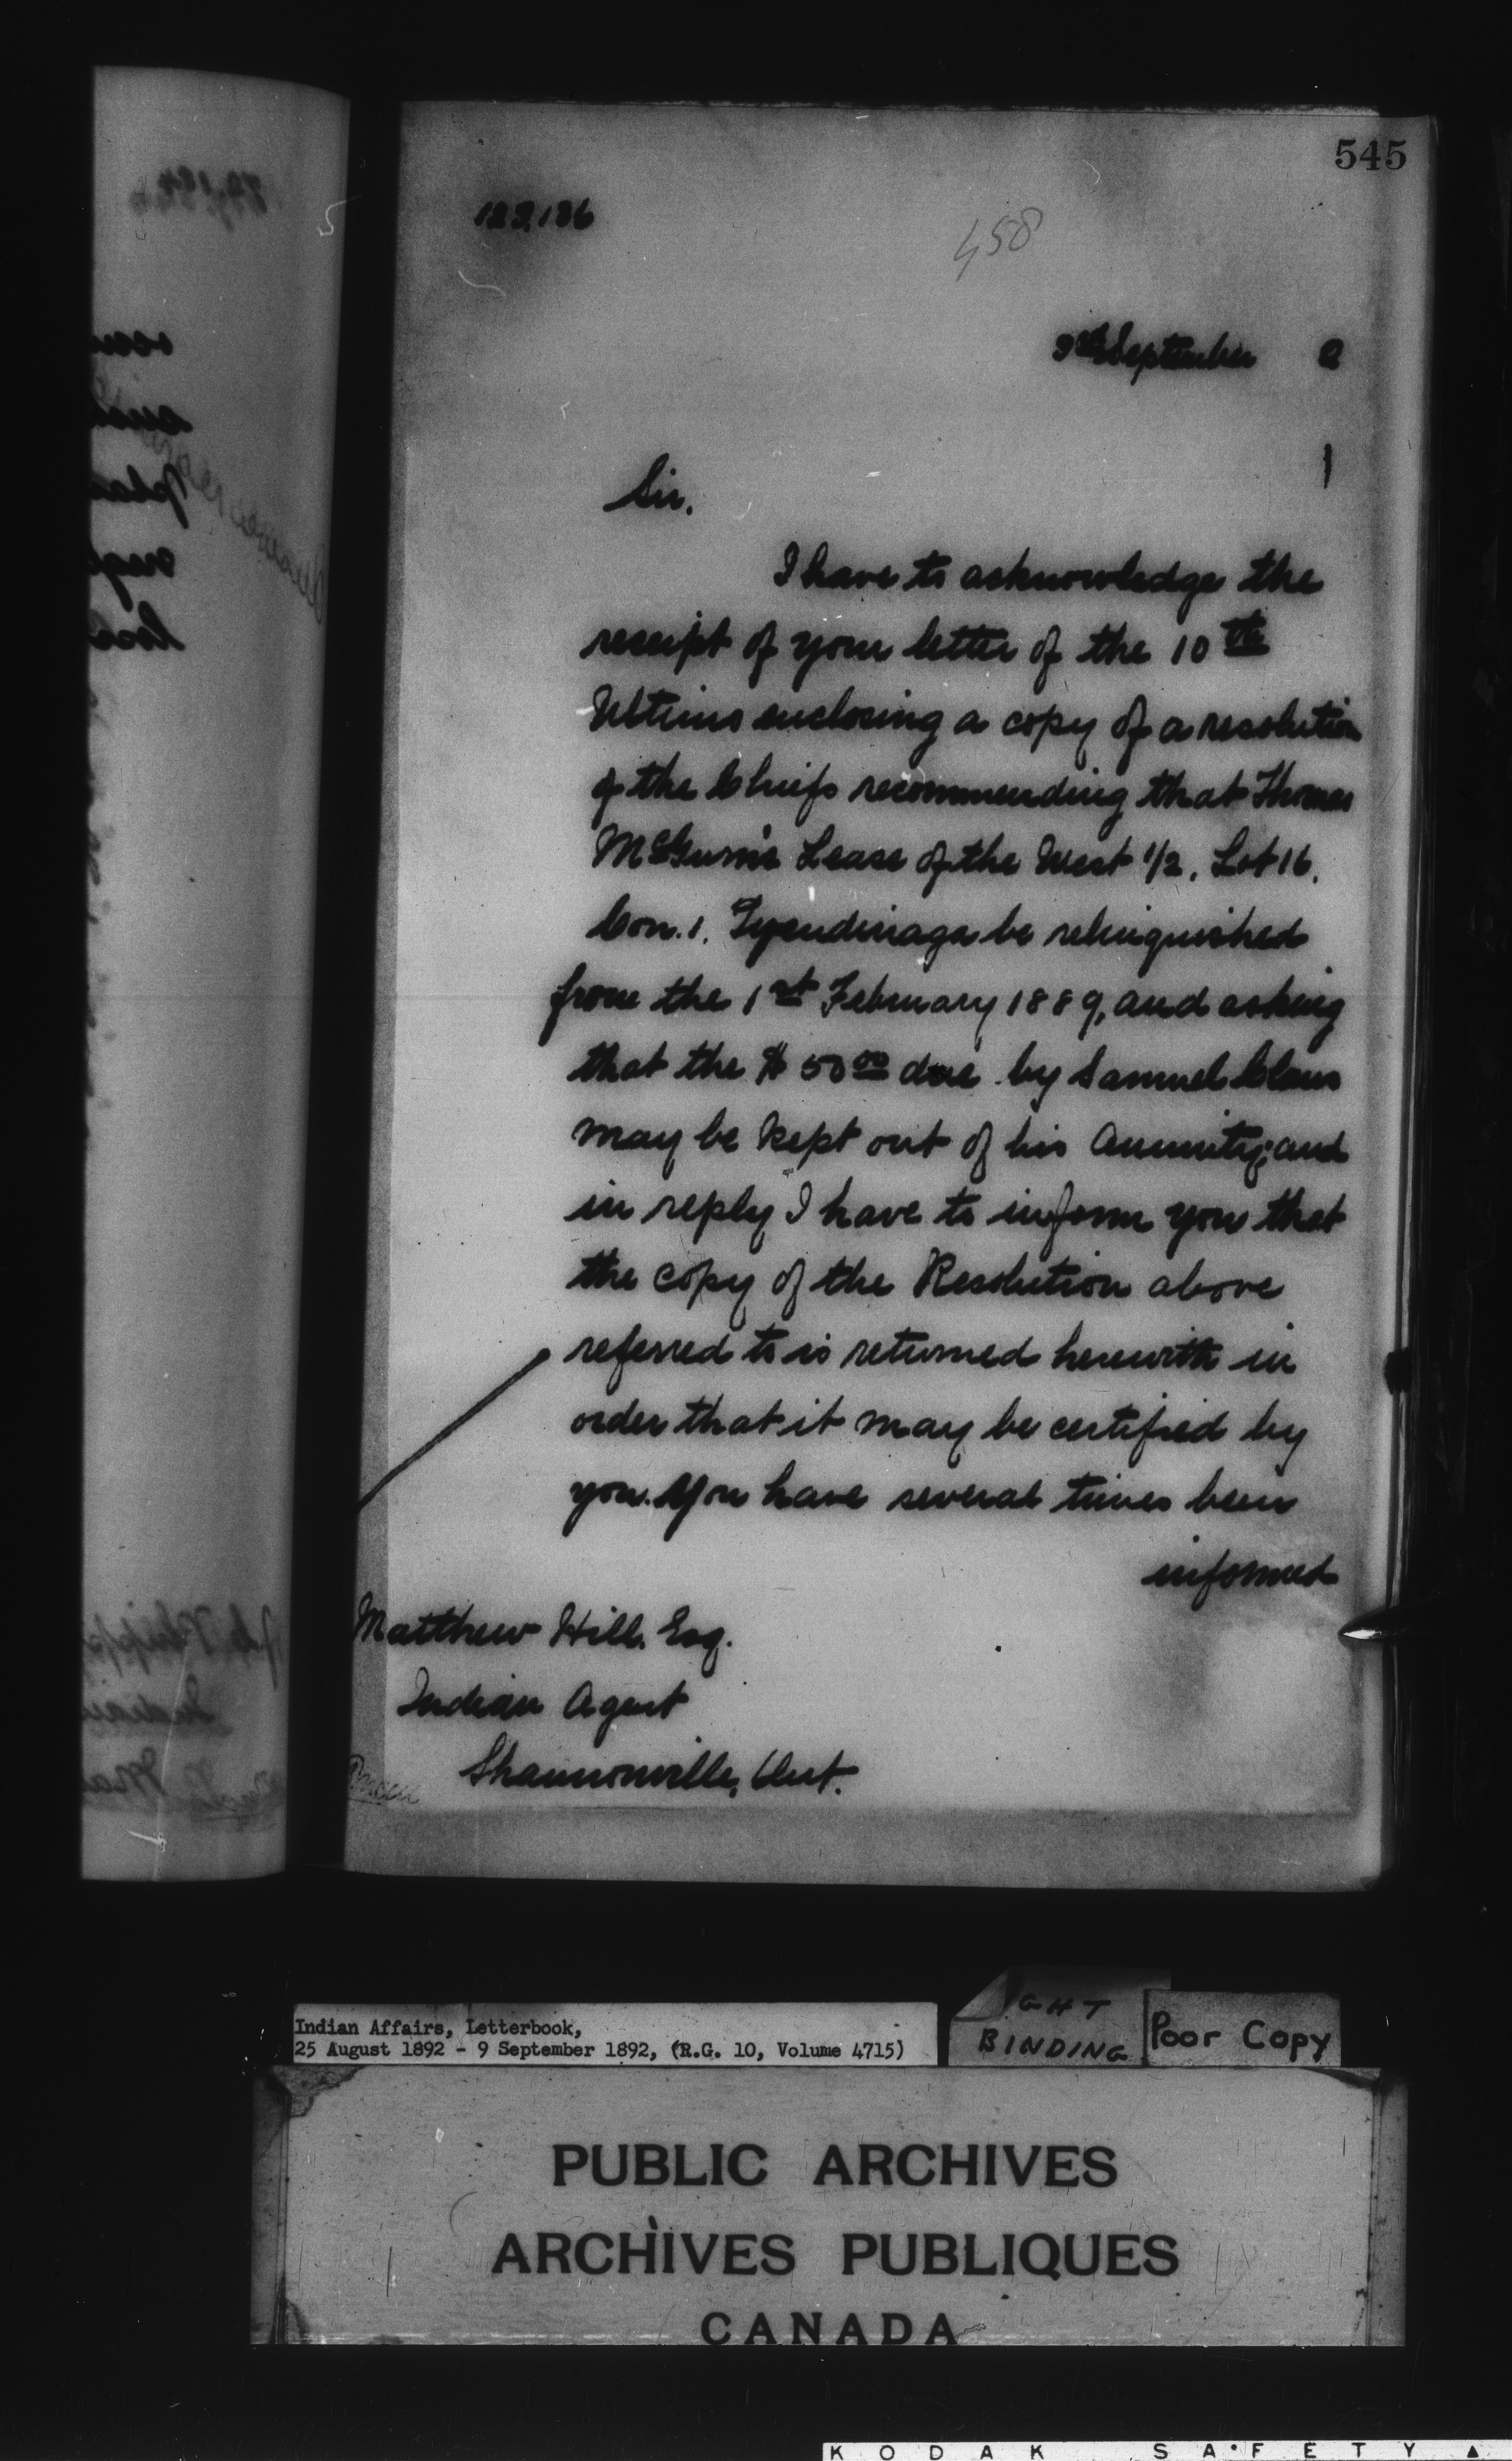 545
123,136
458
3rd September 2
Sir.
I have to acknowledge the
receipt of your letter of the 10th
Ultimo enclosing a copy of a resolution
of the Chiefs recommending that Thomas
McGurn's Lease of the West 1/2, Lot 16,
Con. 1. Tyendinaga be relinquished
from the 1st February 1889, and asking
that the $50.00 due by Samuel Claus
may be kept out of his Annuity; and
in reply I have to inform you that
the copy of the Resolution above
referred to is returned herewith in
order that it may be certified by
you. You have several times been
informed
Matthew Hill. Esq.
Indian Agent
Shannonville, Ont.
Indian Affairs, Letterbook,
25 August 1892 - 9 September 1892, (R.G. 10, Volume 4715)
GHT
BINDING
Poor Copy
PUBLIC ARCHIVES
ARCHIVES PUBLIQUES
CANADA
KODAK SAFETY